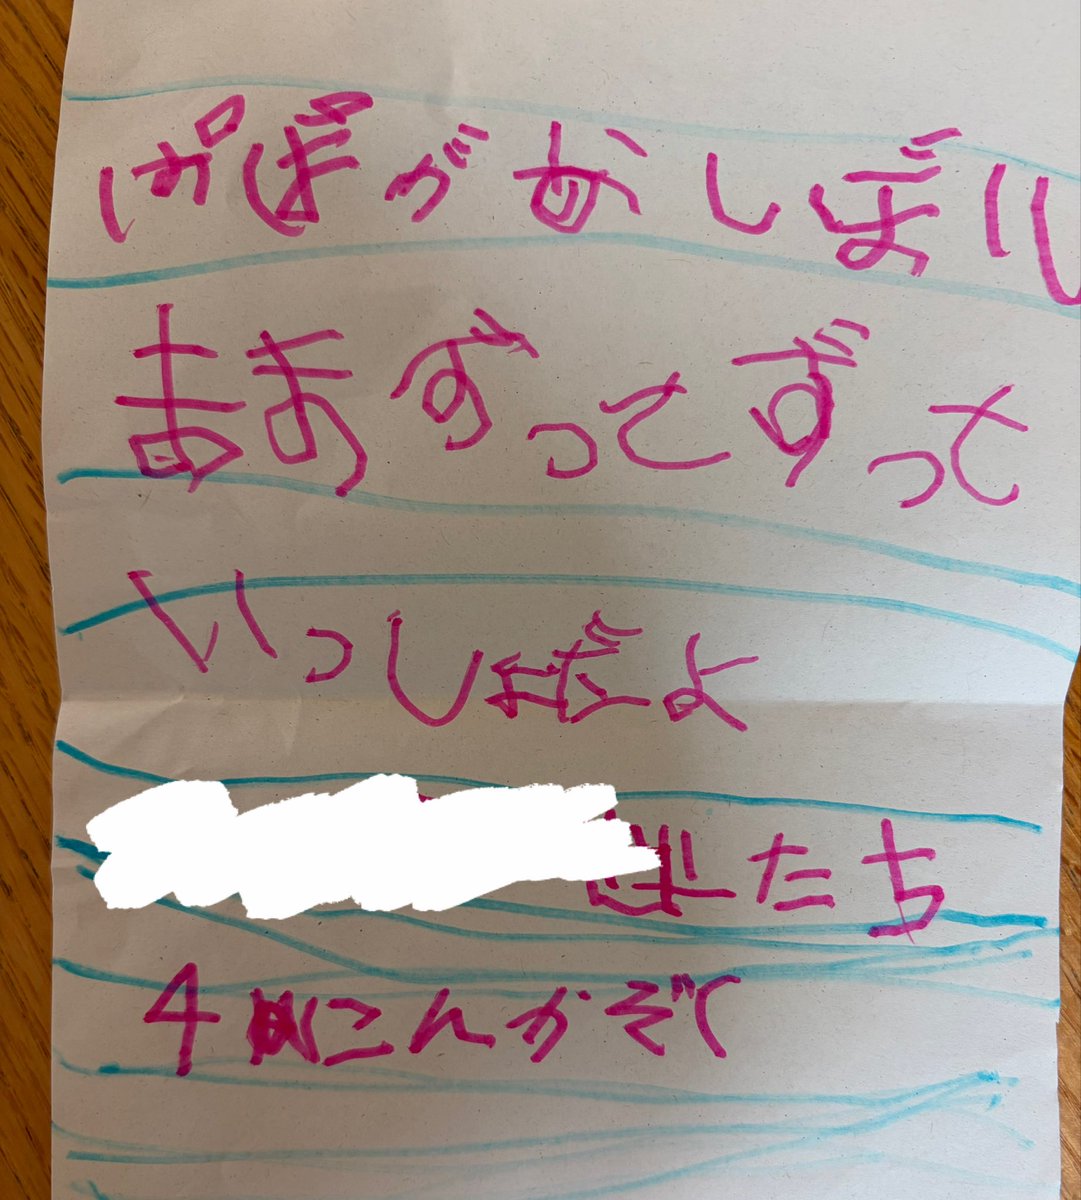 ぱぱがおしぼり
ままずっとずっと
いっしょだよ
たち
4にんかぞく